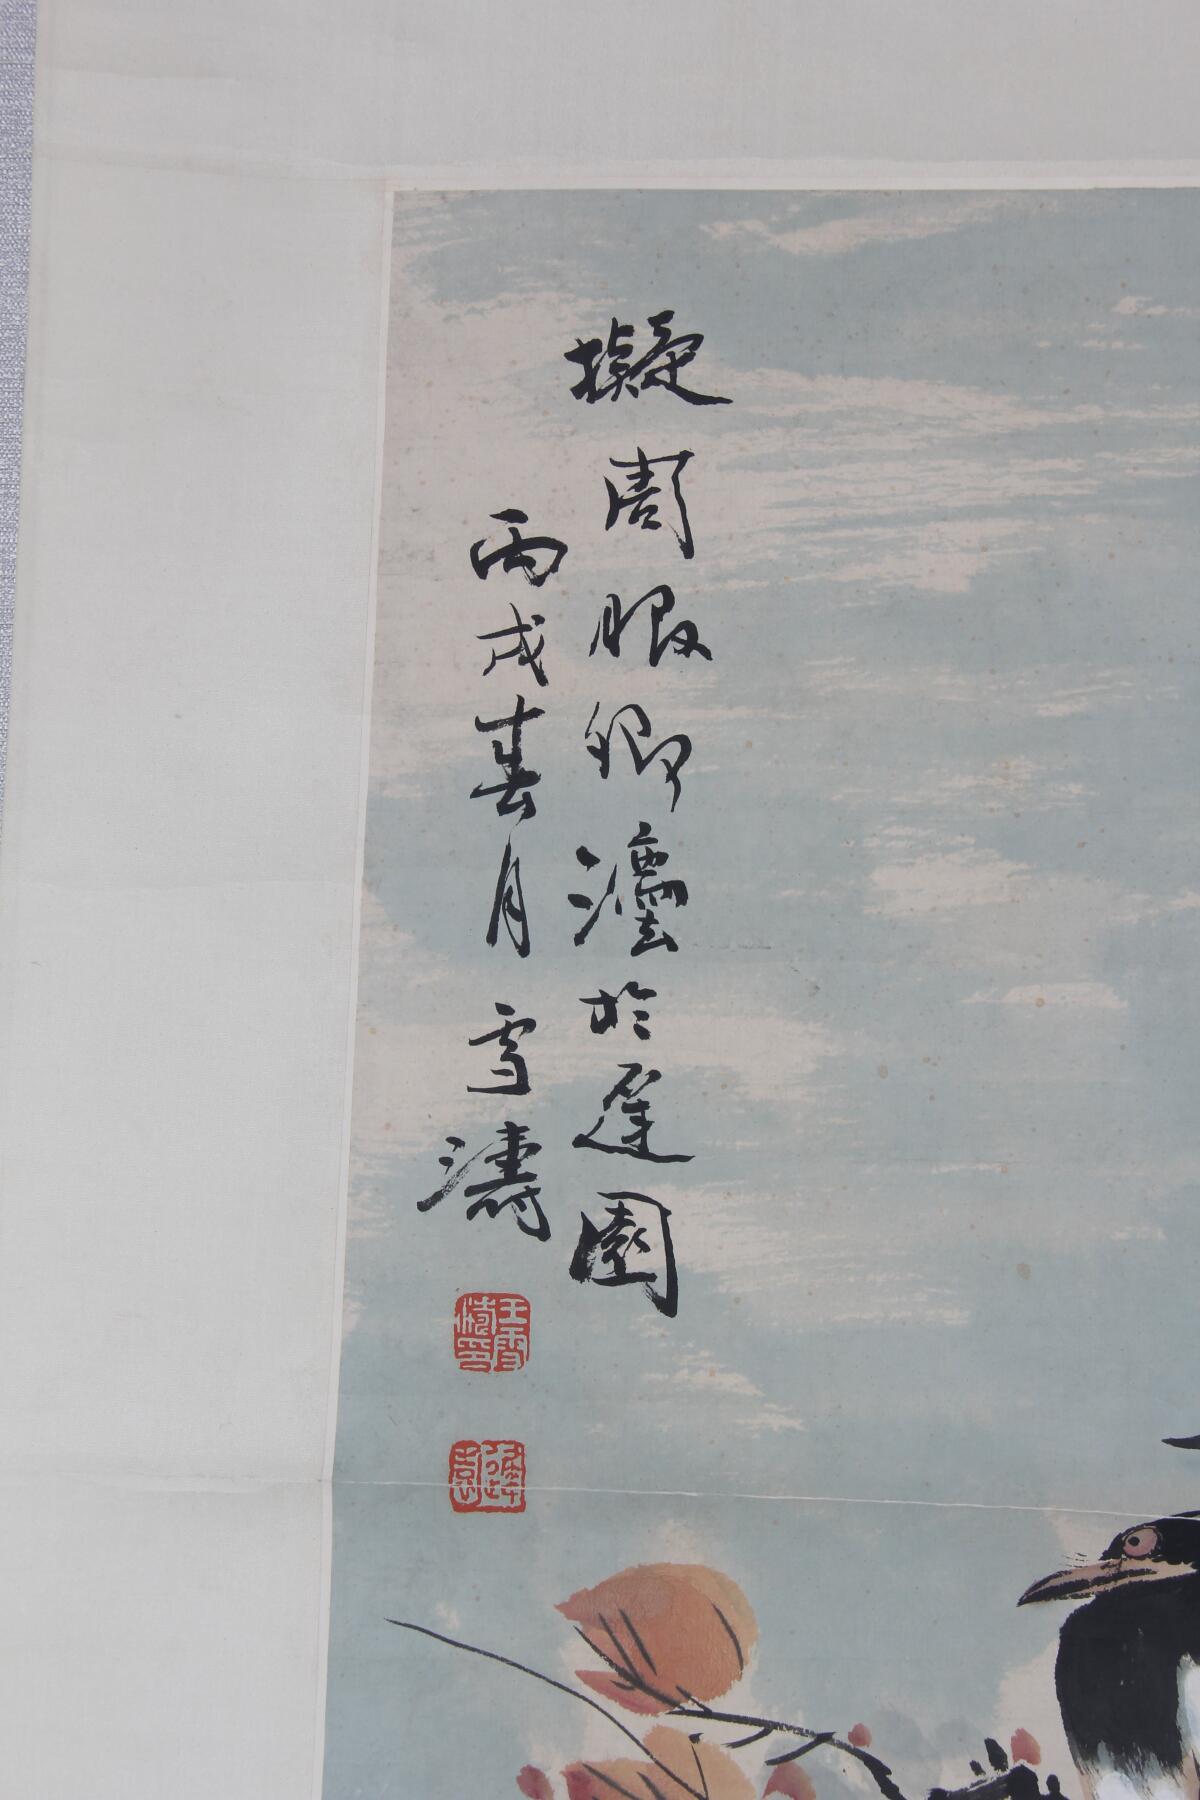 擬周服卿灋於遲園
丙戌春月雪濤
王雪濤印
遲園